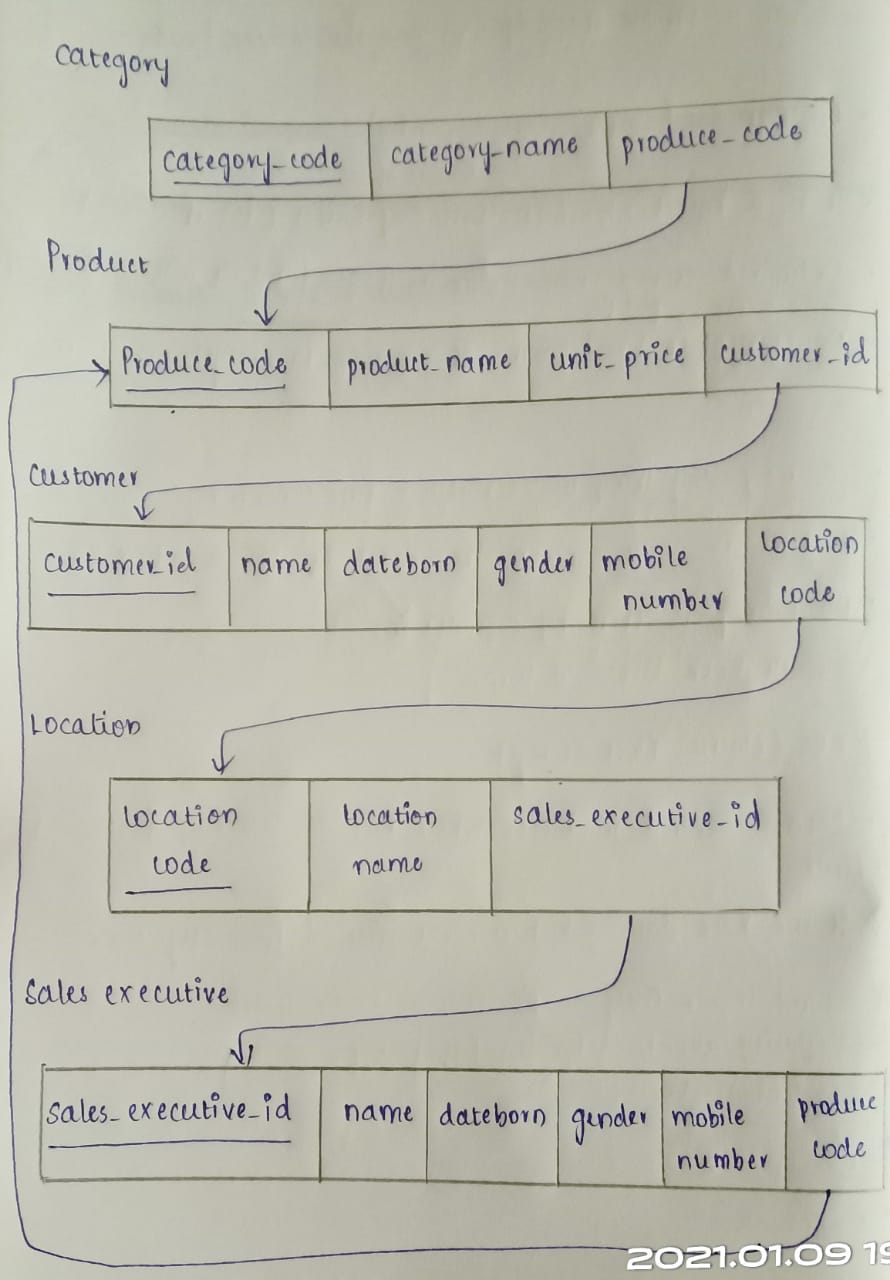 Category
category_code category_name produce_code
Product
Produce_code product_name unit_price customer_id
Customer
customer_id name dateborn gender mobile number location code
Location
location code location name sales_executive_id
Sales executive
sales_executive_id name dateborn gender mobile number produce code
2021.01.09 19